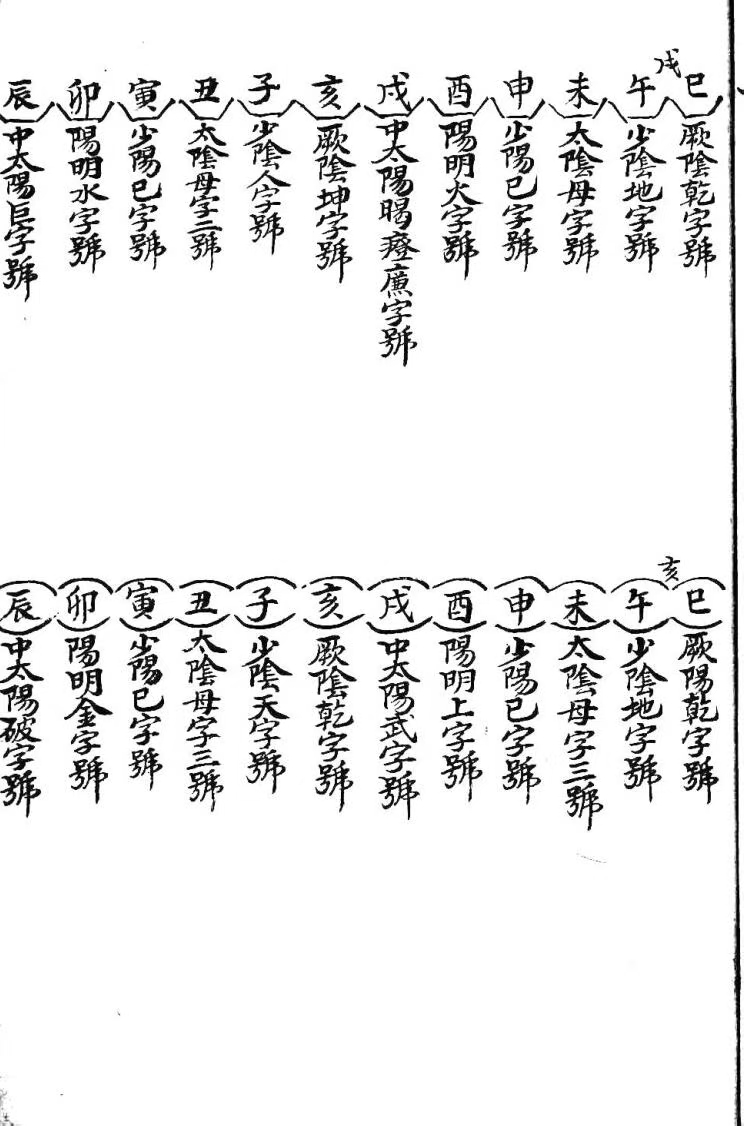 戌
巳 厥陰乾字號
午 少陰地字號
未 太陰母字號
申 少陽巳字號
酉 陽明火字號
戌 中太陽暍癈廌字號
亥 厥陰坤字號
子 少陰人字號
丑 太陰母字二號
寅 少陽巳字號
卯 陽明水字號
辰 中太陽巨字號
亥
巳 厥陽乾字號
午 少陰地字號
未 太陰母字三號
申 少陽巳字號
酉 陽明上字號
戌 中太陽武字號
亥 厥陰乾字號
子 少陰天字號
丑 太陰母字三號
寅 少陽巳字號
卯 陽明金字號
辰 中太陽破字號